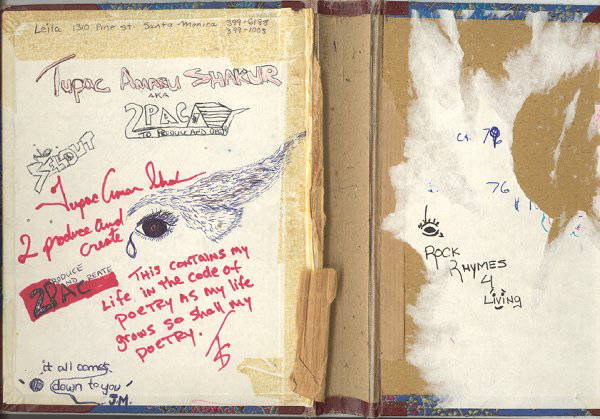 Leila 1310 Pine st. Santa-Monica 399-6188
399-1003
TUPAC AMARU SHAKUR
AKA
2PAC
TO PRODUCE AND CREATE
NO
SELLOUT
Tupac Amaru Shakur
2 produce and
create
PRODUCE
AND CREATE
2PAC
THIS CONTAINS MY
Life in the code of
POETRY AS my life
grows so shall my
POETRY.
it all comes
down to you
J.M.
76
76
ROCK
RHYMES
4
LiViNg